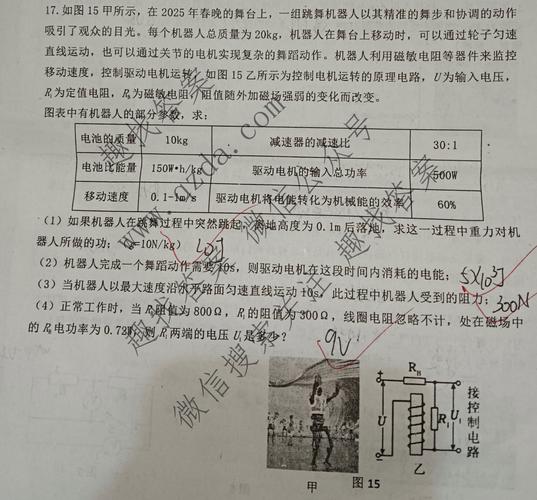 17. 如图 15 甲所示，在 2025 年春晚的舞台上，一组跳舞机器人以其精准的舞步和协调的动作
吸引了观众的目光。每个机器人总质量为 20kg，机器人在舞台上移动时，可以通过轮子匀速
直线运动，也可以通过关节的电机实现复杂的舞蹈动作。机器人利用磁敏电阻等器件来监控
移动速度，控制驱动电机运转，如图 15 乙所示为控制电机运转的原理电路，U为输入电压，
为定值电阻，为磁敏电阻，阻值随外加磁场强弱的变化而改变。
图表中有机器人的部分参数，求：
电池的质量 10kg 减速器的减速比 30:1
电池比能量 150W·h/kg 驱动电机的输入总功率 500W
移动速度 0.1-1m/s 驱动电机将电能转化为机械能的效率 60%
(1) 如果机器人在跳舞过程中突然跳起，离地高度为 0.1m 后落地，求这一过程中重力对机
器人所做的功；(g=10N/kg) 
(2) 机器人完成一个舞蹈动作需要 10s，则驱动电机在这段时间内消耗的电能；5×10³J
(3) 当机器人以最大速度沿水平路面匀速直线运动 10s，此过程中机器人受到的阻力；300N
(4) 正常工作时，当阻值为 800Ω，的阻值为 300Ω，线圈电阻忽略不计，处在磁场中
的电功率为 0.72W，则两端的电压 U₁是多少？
9V
R_B
U
R₁
U₁
接控制电路
甲
图 15
乙
趣找答案
www.qzda.com
微信公众号
微信搜索关注
趣找答案